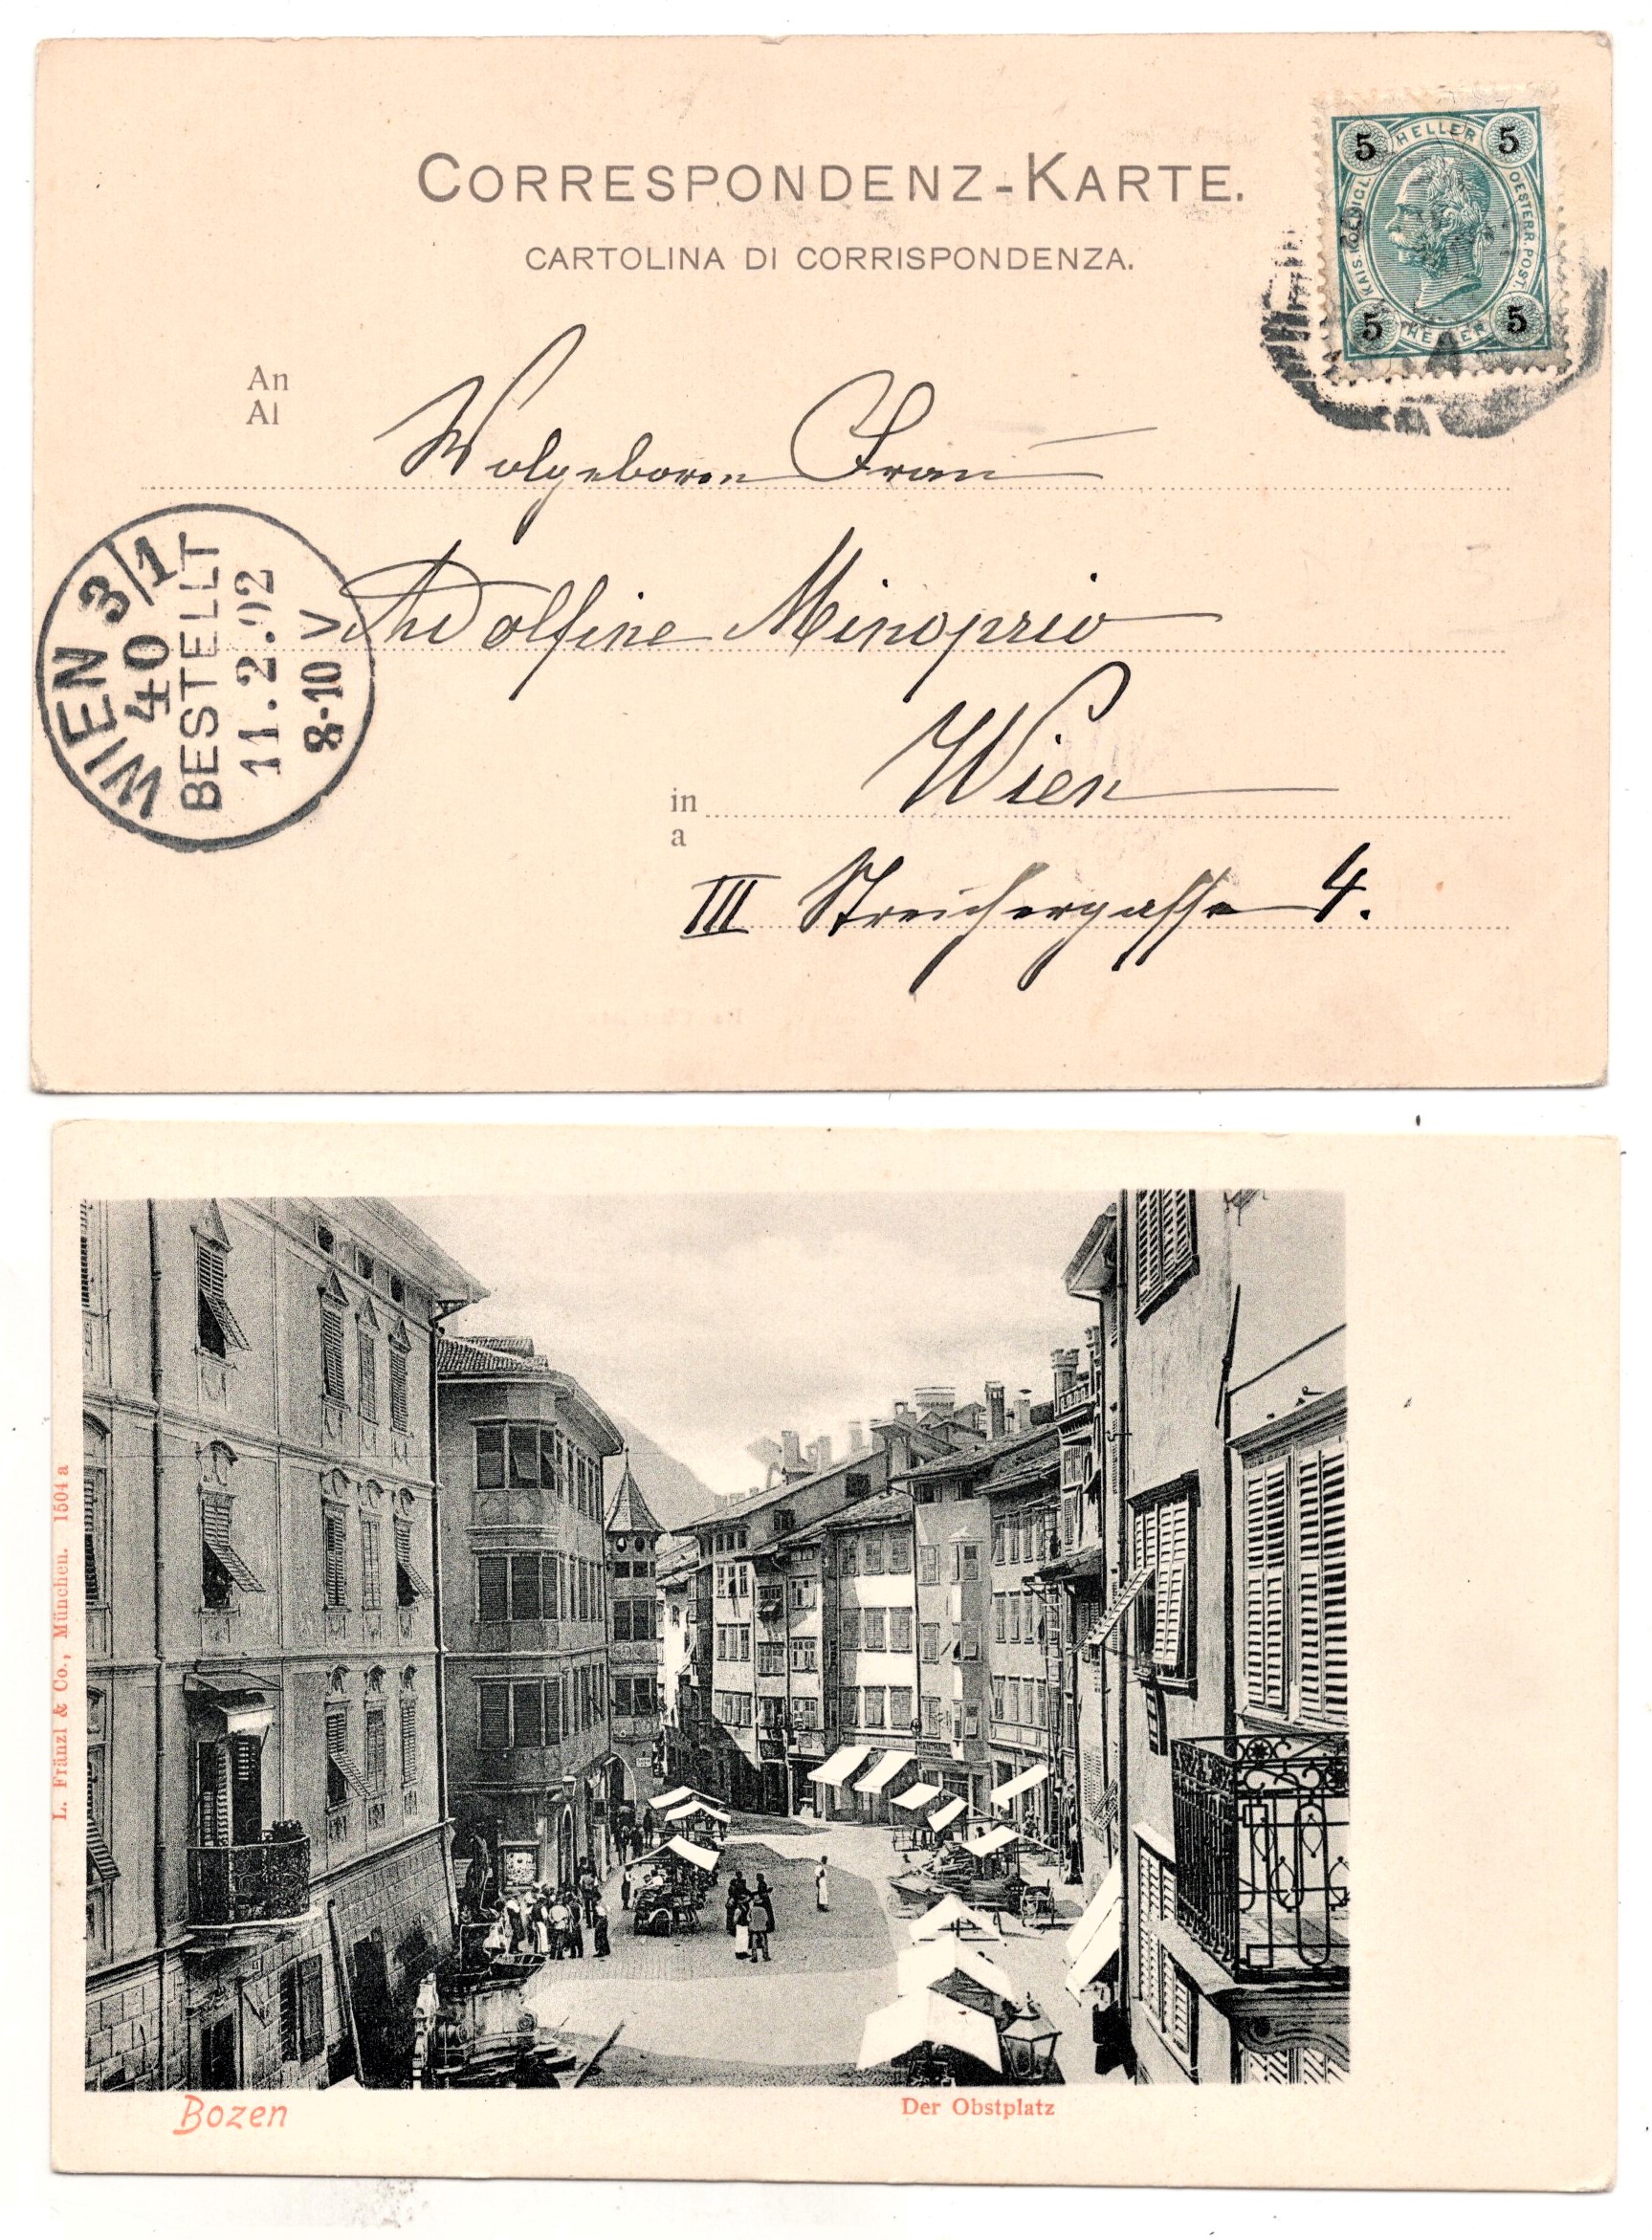 CORRESPONDENZ-KARTE.
CARTOLINA DI CORRISPONDENZA.
5 HELLER 5
KAIS. KÖNIGL.
OESTERR. POST.
5 HELLER 5
An
Al
Wolgeboren Frau
Adolfine Minoprio
in Wien
a
III Streichergasse 4.
WIEN 3/1
40
BESTELLT
11.2.02
8-10 V
L. Fränzl & Co., München. 1504 a
Bozen
Der Obstplatz